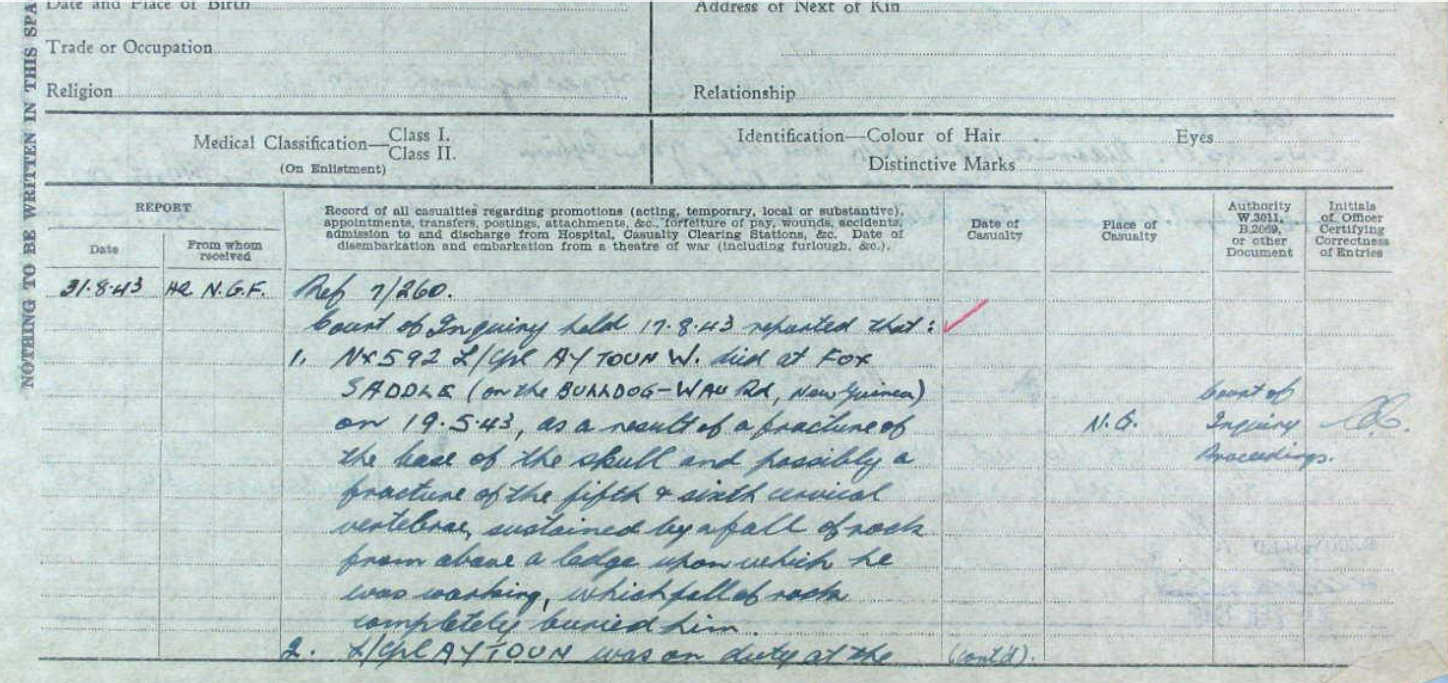 NOTHING TO BE WRITTEN IN THIS SPA
Date and Place of Birth
Address of Next of Kin
Trade or Occupation
Religion
Relationship
Medical Classification—Class I.
Class II.
(On Enlistment)
Identification—Colour of Hair Eyes
Distinctive Marks
REPORT
Date
From whom
received
Record of all casualties regarding promotions (acting, temporary, local or substantive),
appointments, transfers, postings, attachments, &c., forfeiture of pay, wounds, accidents,
admission to and discharge from Hospital, Casualty Clearing Stations, &c. Date of
disembarkation and embarkation from a theatre of war (including furlough, &c.).
Date of
Casualty
Place of
Casualty
Authority
W.3011,
B.2069,
or other
Document
Initials
of Officer
Certifying
Correctness
of Entries
31.8.43 HQ N.G.F. Ref 7/260.
Court of Inquiry held 17.8.43 reported that:
1. NX592 L/Cpl AYTOUN W. died at FOX
SADDLE (on the BULLDOG-WAU Rd, New Guinea)
on 19.5.43, as a result of a fracture of
the base of the skull and possibly a
fracture of the fifth & sixth cervical
vertebrae, sustained by a fall of rock
from above a ledge upon which he
was working, which fall of rock
completely buried him.
N.G.
Court of
Inquiry
Proceedings.
2. L/Cpl AYTOUN was on duty at the (cont'd).